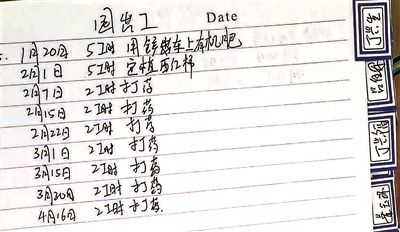 出工 Date
1月20日 5工时 用锌铁车上有机肥
2月1日 5工时 定植西红柿
2月7日 2工时 打药
2月15日 2工时 打药
2月22日 2工时 打药
3月1日 2工时 打药
3月15日 2工时 打药
3月30日 2工时 打药
4月16日 2工时 打药.